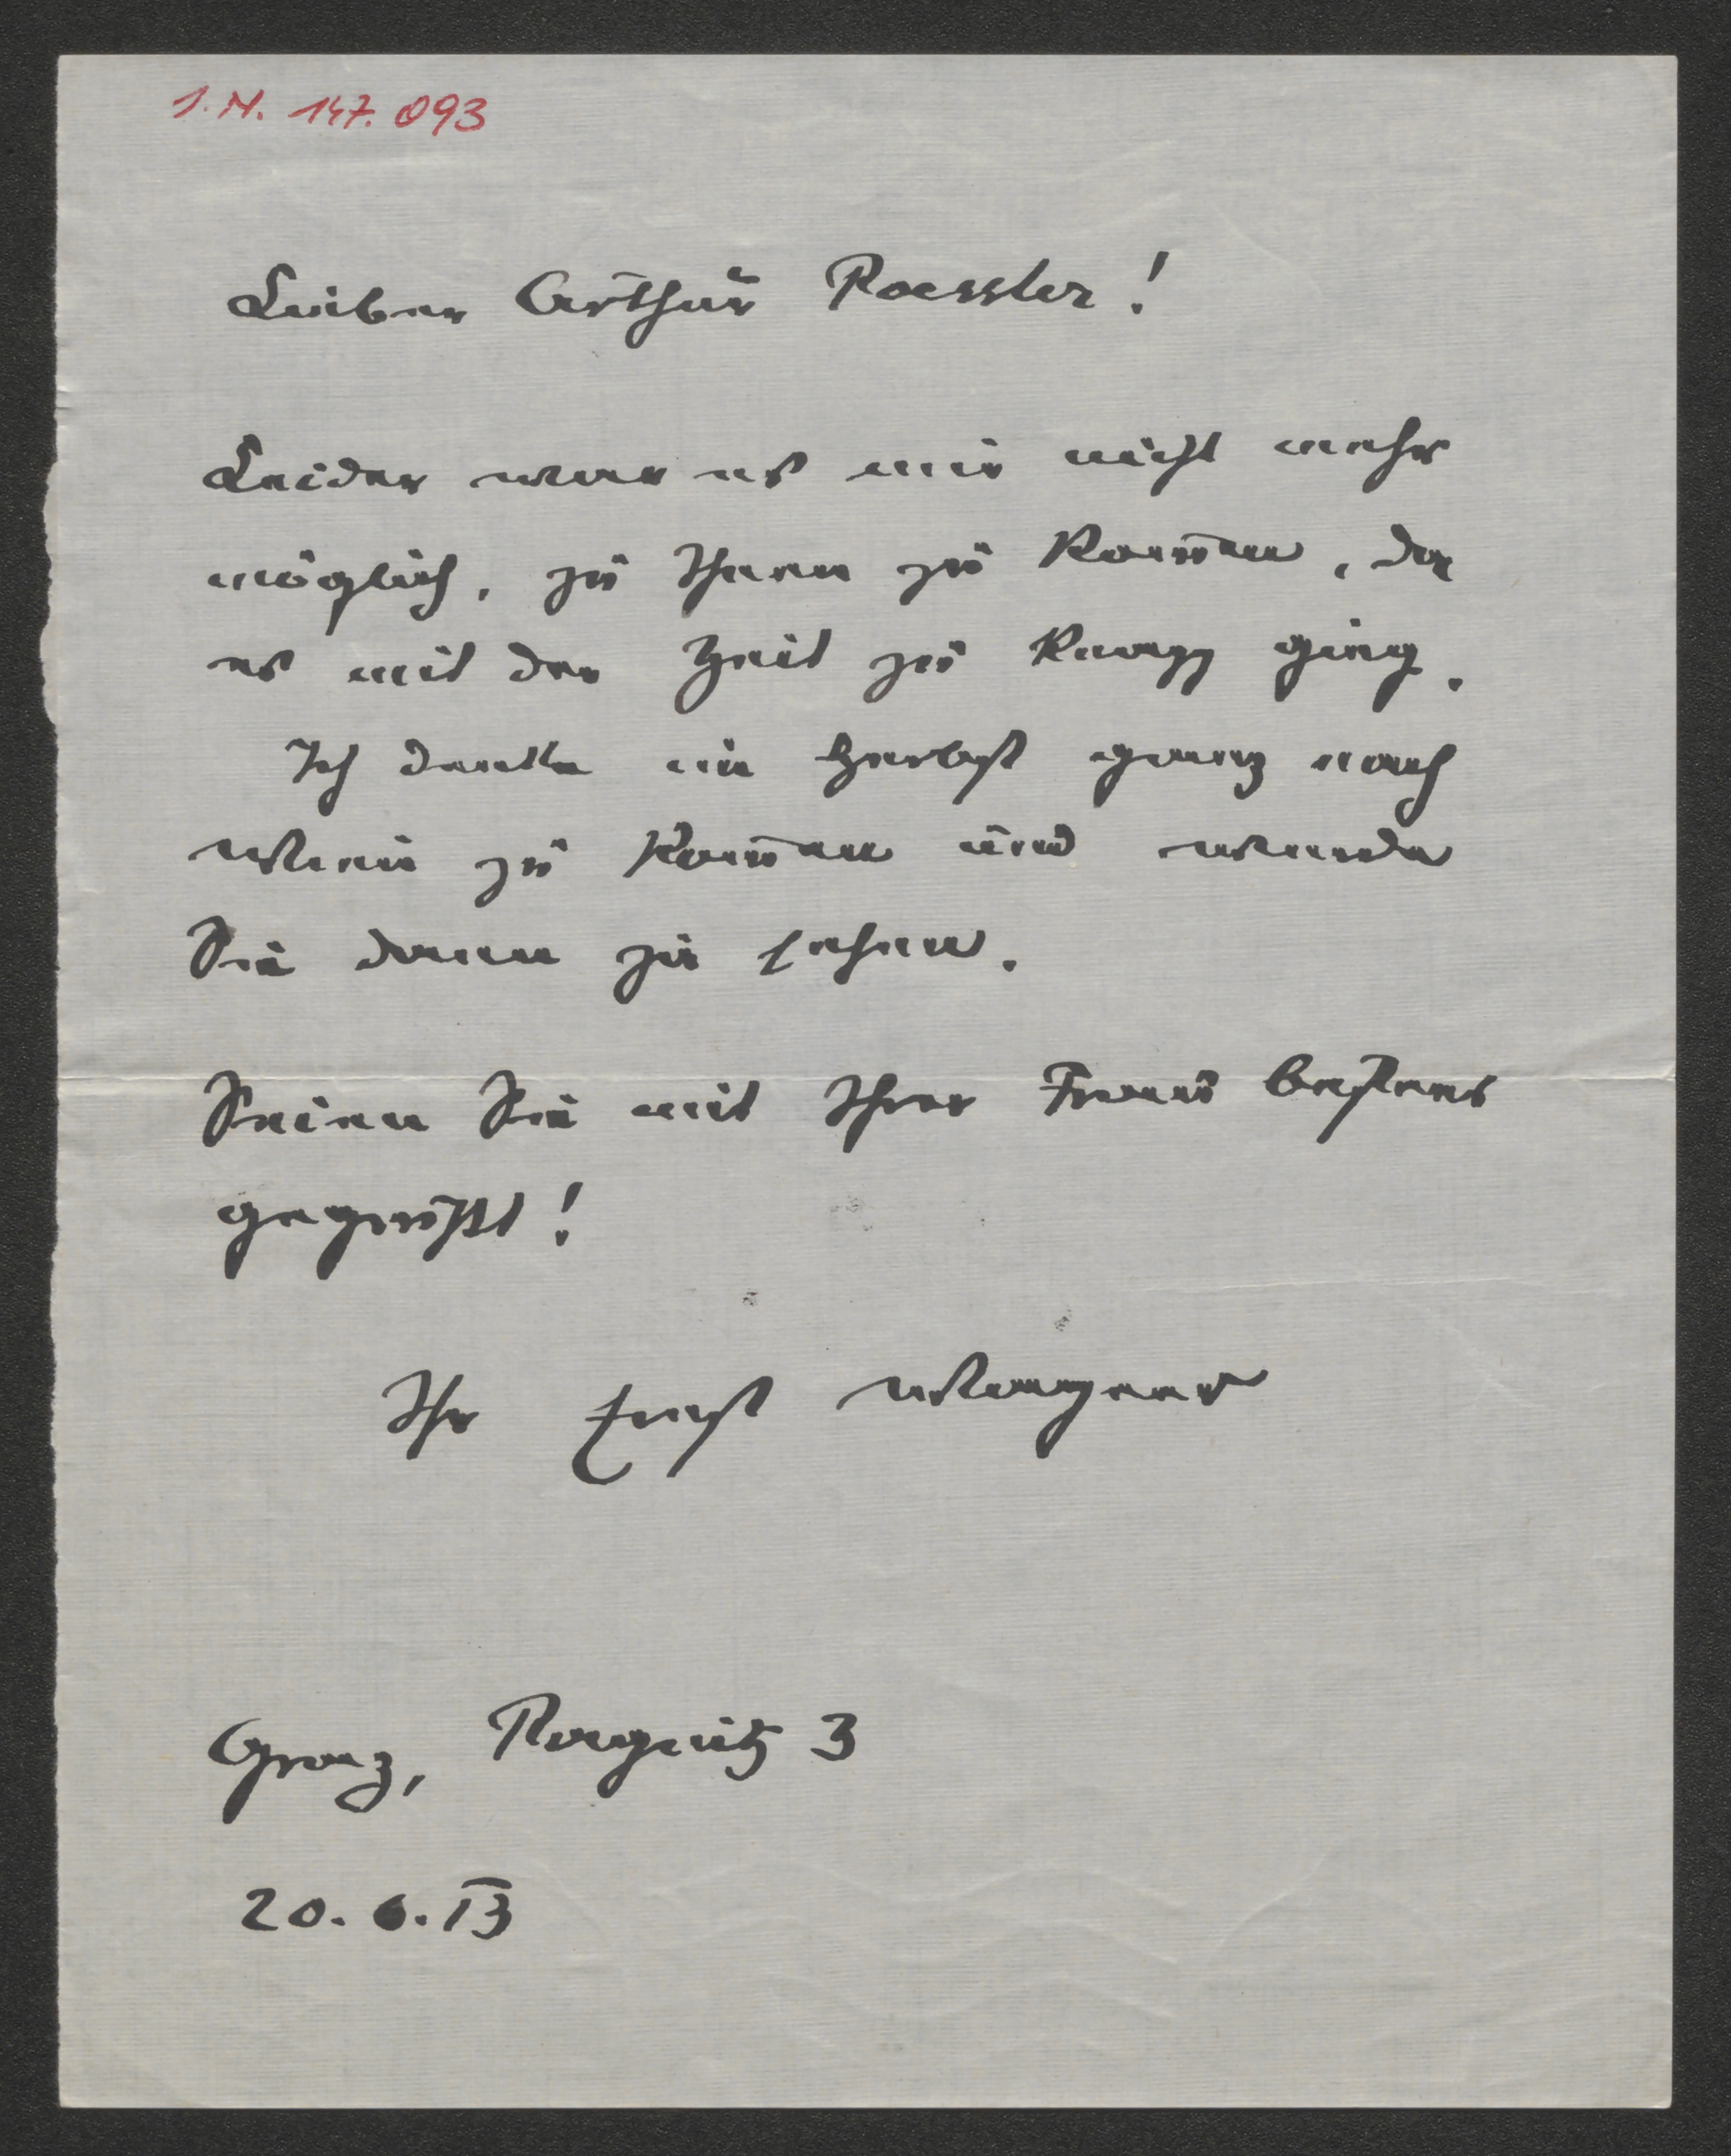 I.N. 147.093
Lieber Arthur Roessler!
Leider war es mir nicht mehr
möglich, zu Ihnen zu kom̅en, da
es mit der Zeit zu knapp ging.
Ich denke im Herbst ganz nach
Wien zu kom̅en und
Sie dann zu sehen.
Seien Sie mit Ihrer Frau bestens
gegrüßt!
Ihr Ernst Wagner
Graz, Ragnitz 3
20. 6. 13